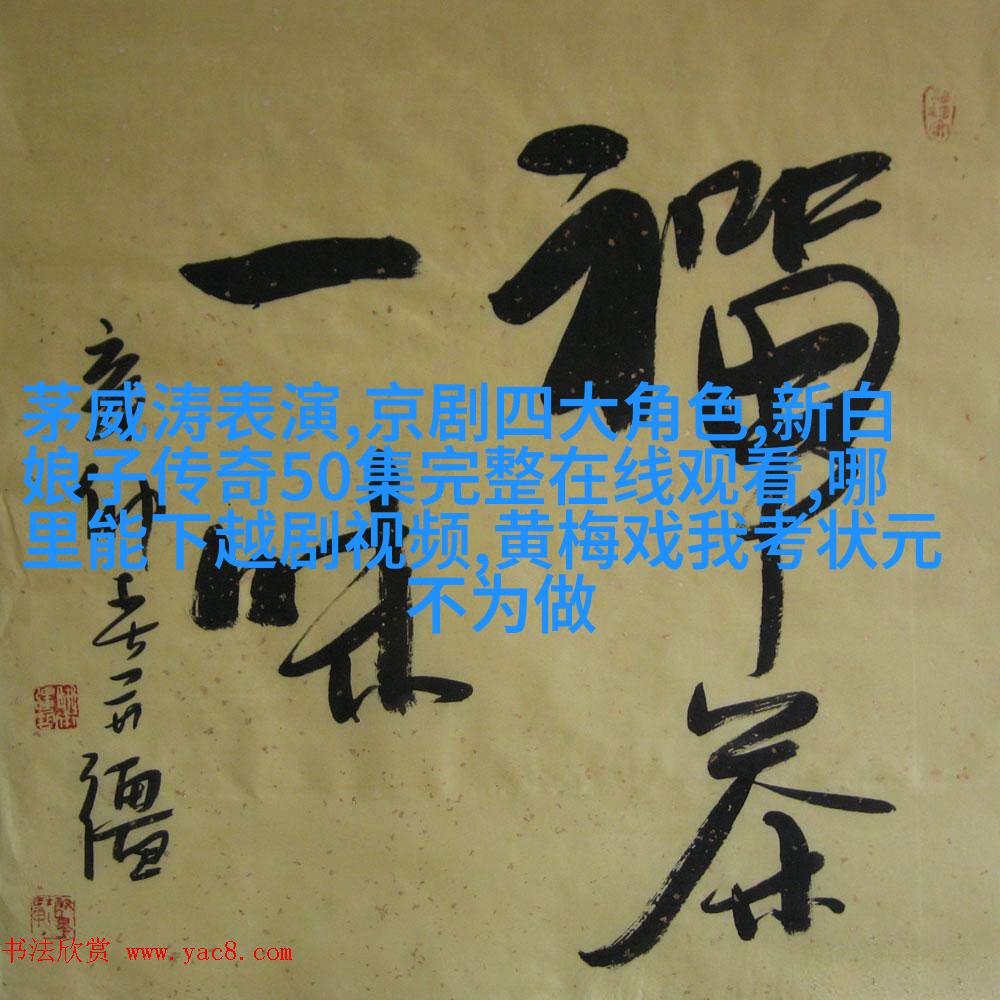 禅茶
一味
茅威涛表演,京剧四大角色,新白
娘子传奇50集完整在线观看,哪
里能下越剧视频,黄梅戏我考状元
不为做
书法欣赏 www.yac8.com